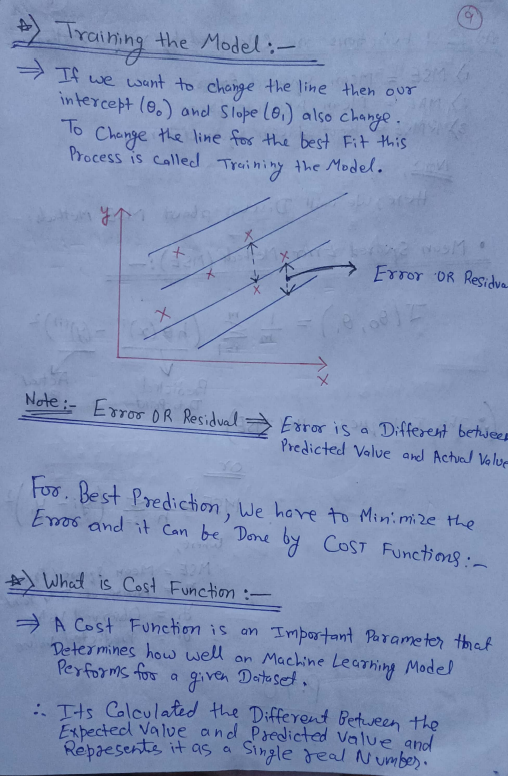 9
Training the Model :-
⇒ If we want to change the line then our
intercept (θ₀) and Slope (θ₁) also change.
To Change the line for the best Fit this
Process is called Training the Model.
y
Error OR Residua
x
Note :- Error OR Residual ⇒ Error is a Different between
Predicted Value and Actual Value
For. Best Prediction, We have to Minimize the
Error and it Can be Done by COST Functions :-
What is Cost Function :-
⇒ A Cost Function is an Important Parameter that
Determines how well an Machine Learning Model
Performs for a given Dataset.
∴ Its Calculated the Different Between the
Expected Value and Predicted Value and
Represents it as a Single real Number.